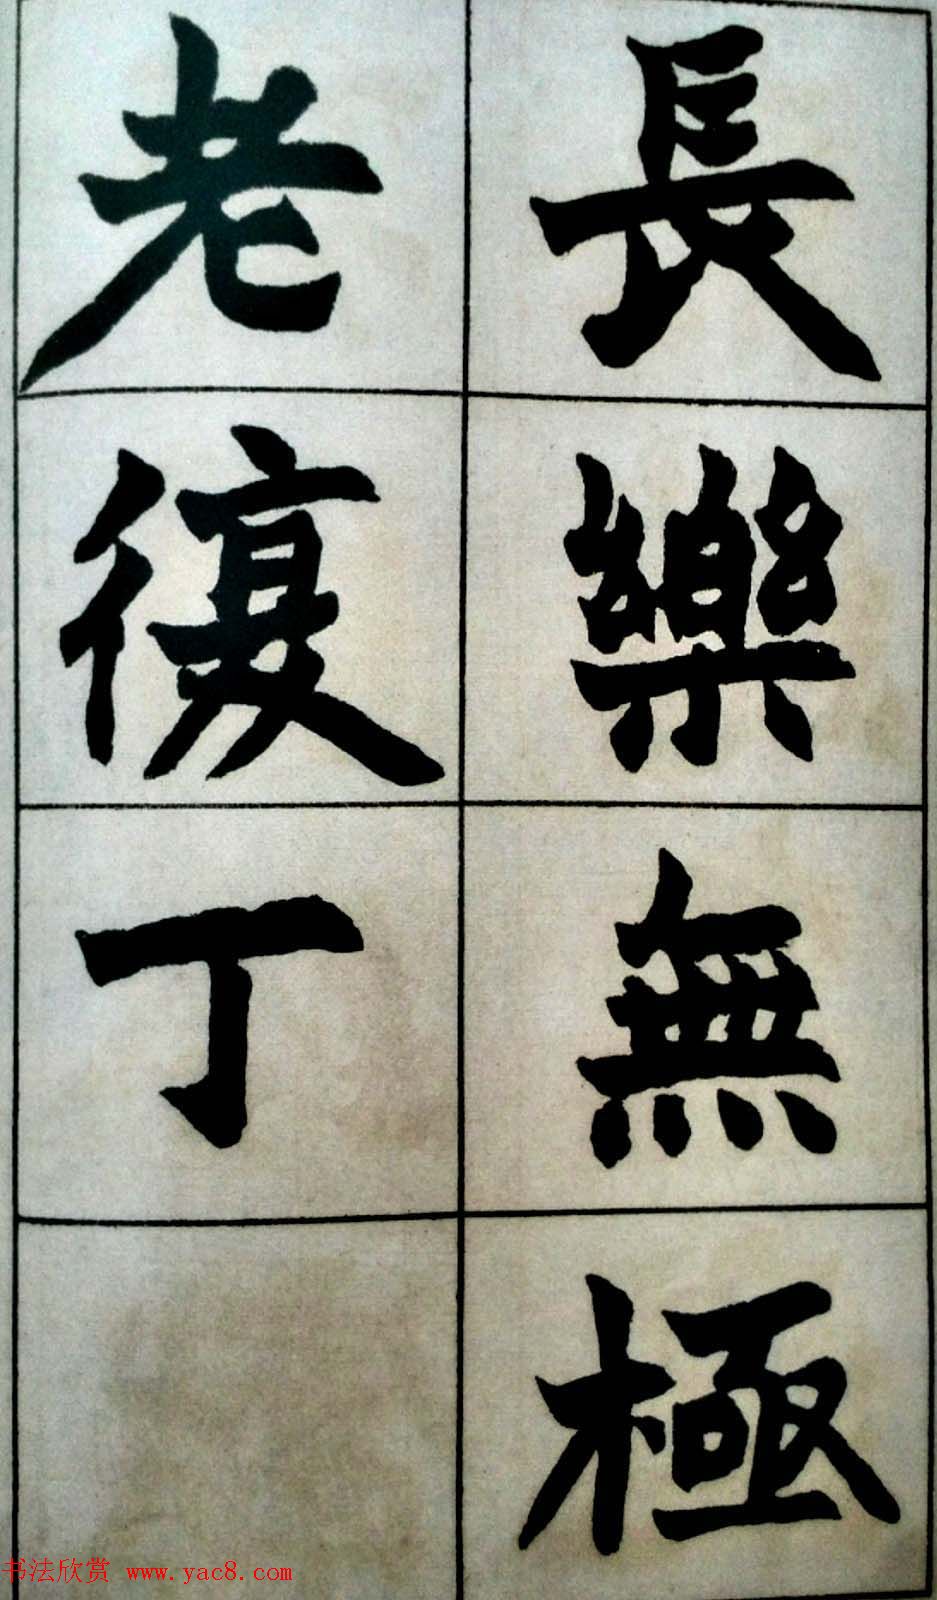 長樂無極
老復丁
书法欣赏 www.yac8.com